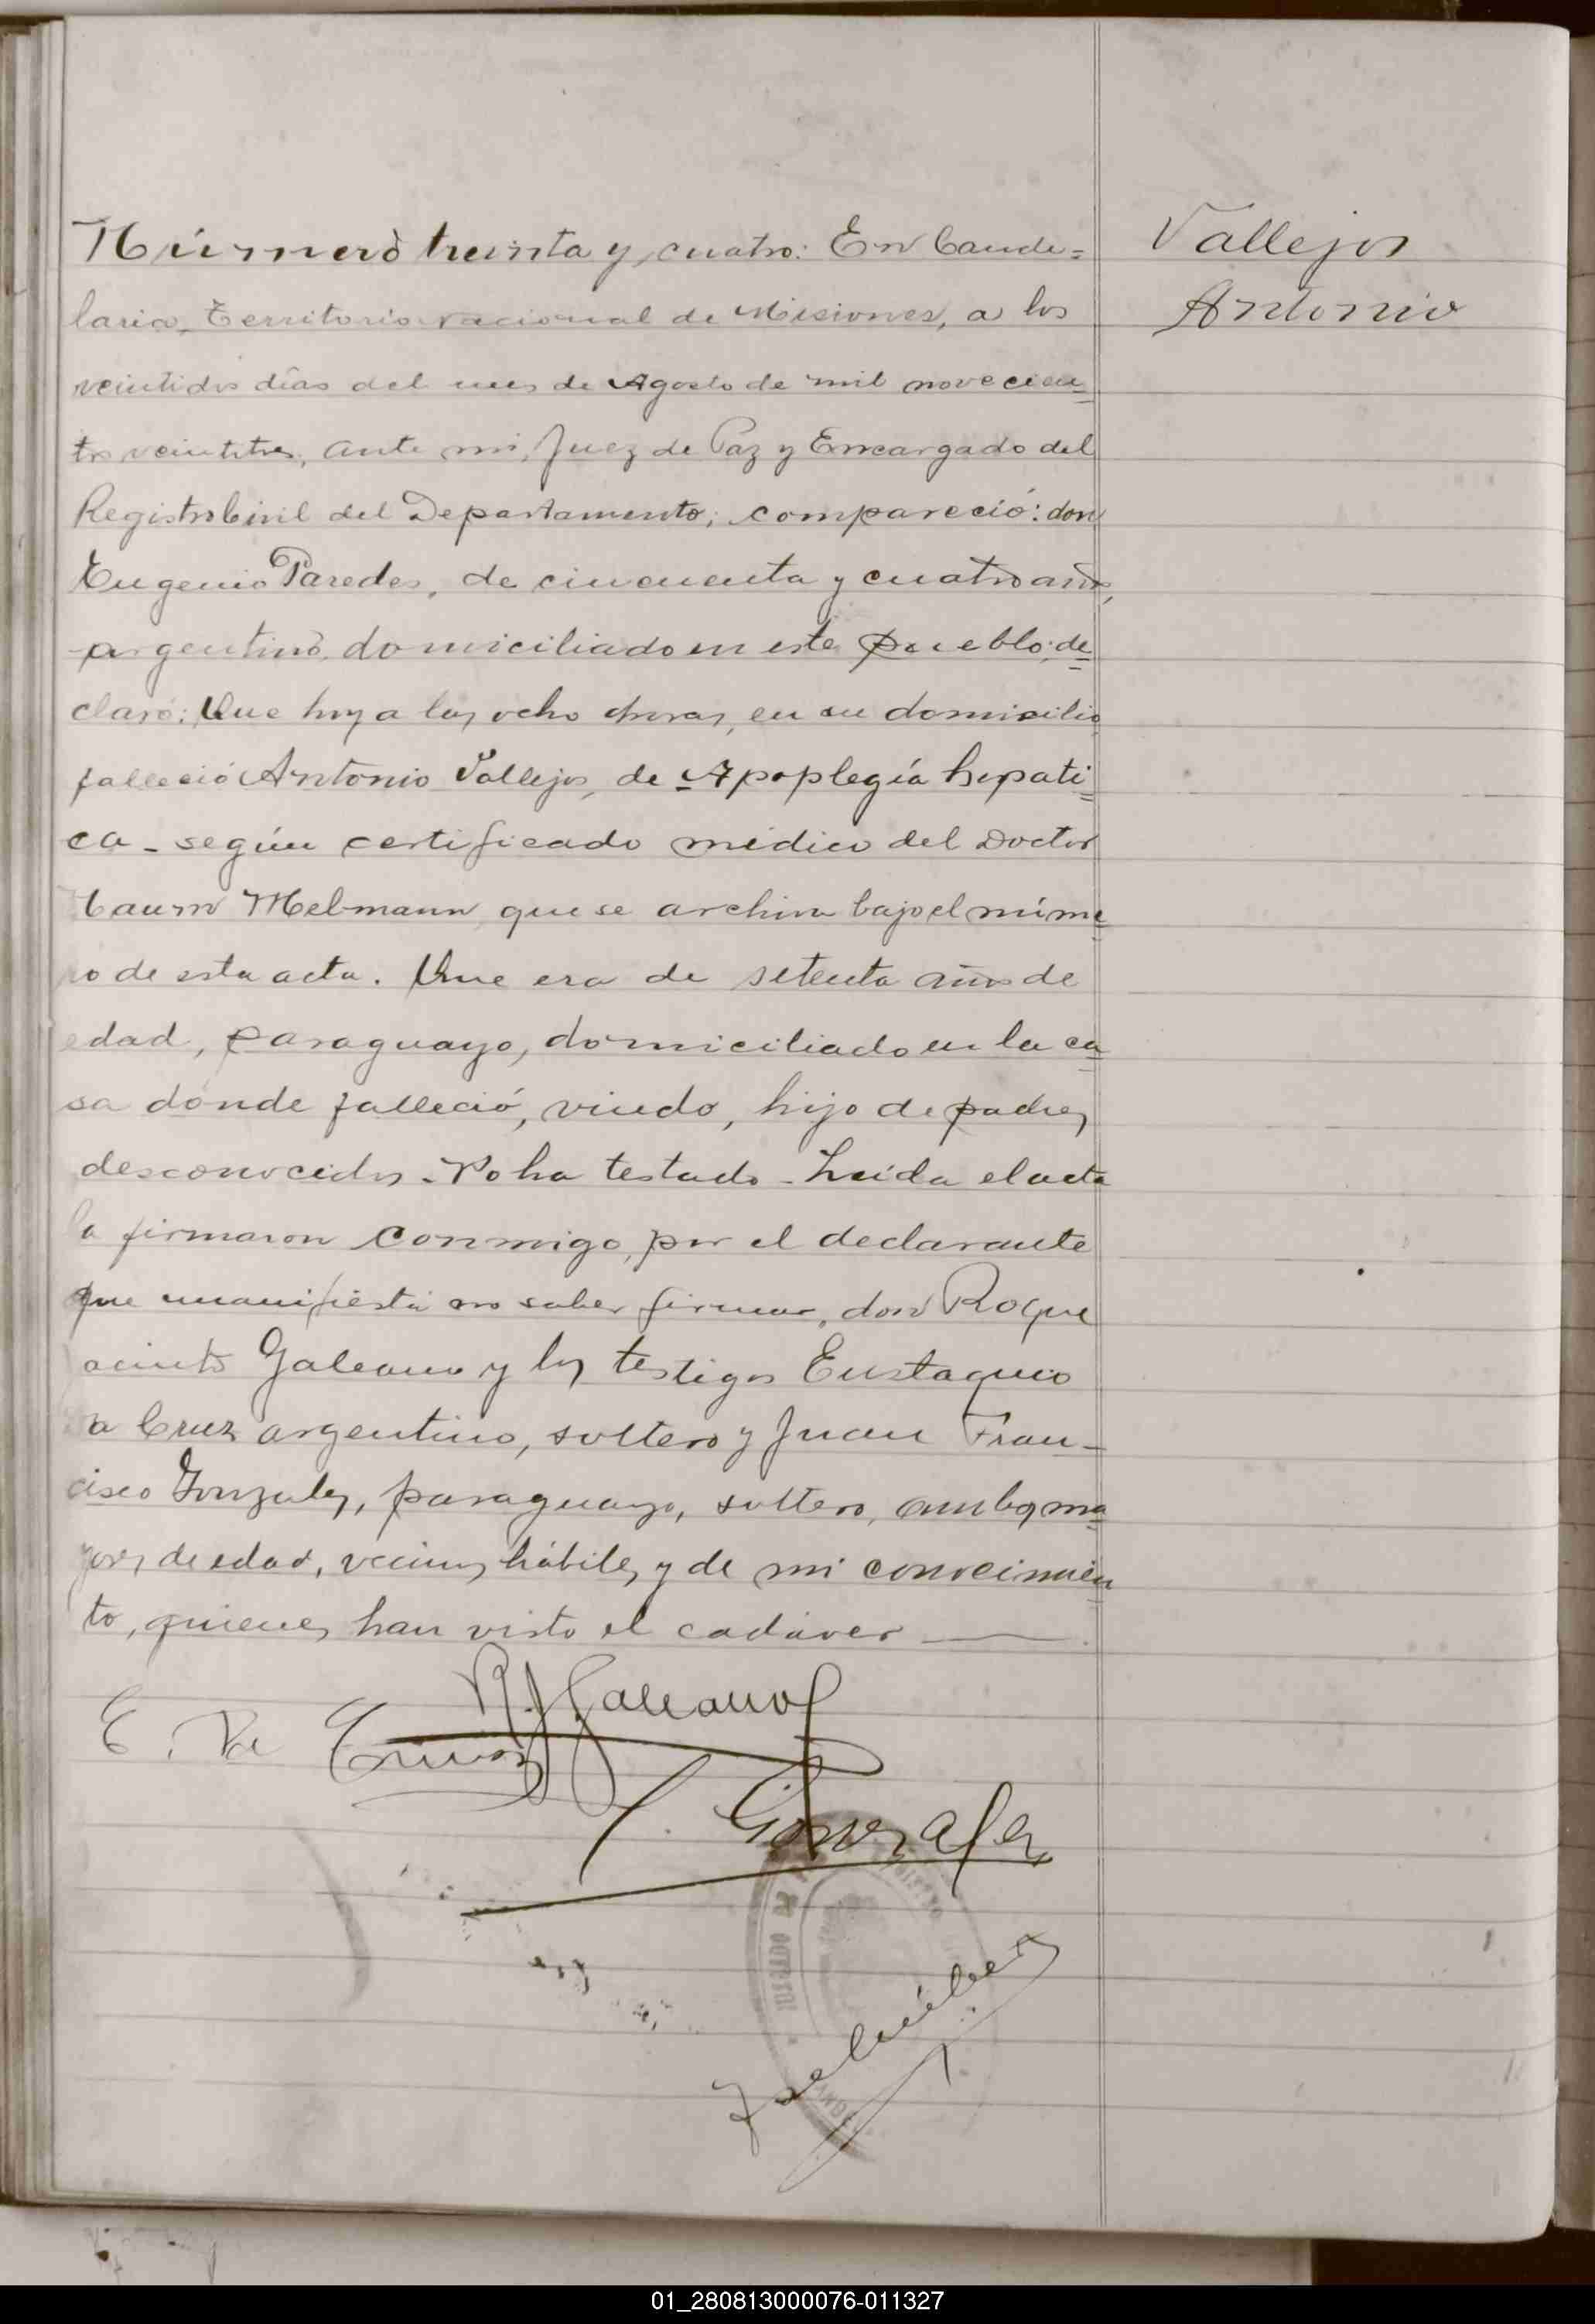 Número treinta y cuatro: En Cande=
laria, Territorio nacional de Misiones, a los
veintidos días del mes de Agosto de mil novecien=
tos veintitres, ante mi, Juez de Paz y Encargado del
Registro Civil del Departamento; compareció: don
Eugenio Paredes, de cincuenta y cuatro años,
argentino, domiciliado en este pueblo; de=
claró: Que hoy a las ocho horas, en su domicilio
falleció Antonio Vallejos, de Apoplegía hepati=
ca - según certificado médico del Doctor
Naum Melmann que se archiva bajo el núme=
ro de esta acta. Que era de setenta años de
edad, paraguayo, domiciliado en la ca=
sa dónde falleció, viudo, hijo de padres
desconocidos. No ha testado - Leida el acta
la firmaron conmigo, por el declarante
que manifiesta no saber firmar, don Roque
Jacinto Galeano y los testigos Eustaquio
la Cruz argentino, soltero y Juan Fran-
cisco Gonzalez, paraguayo, soltero, ambos ma=
yores de edad, vecinos hábiles y de mi conocimien=
to, quienes han visto el cadáver
R. J. Galeano
E. De Cruz
Gonzalez
Vallejos
Antonio
01_280813000076-011327